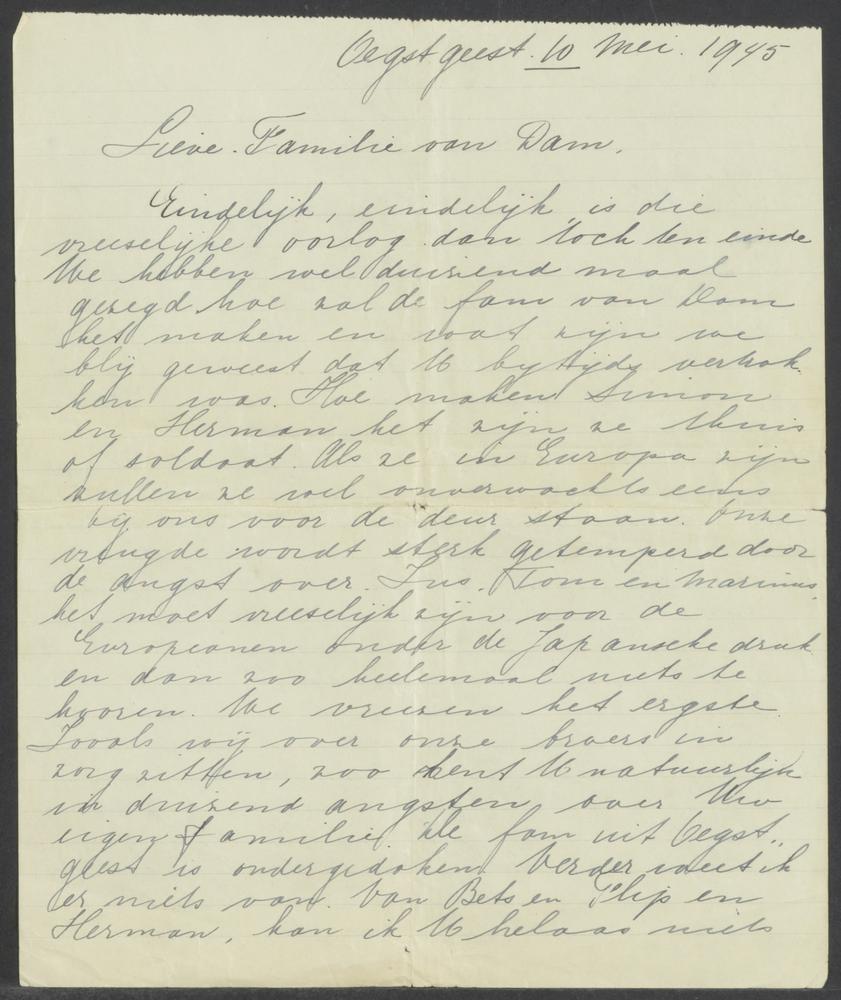 Oegstgeest. 10 Mei. 1945
Lieve. Familie van Dam.
Eindelijk, eindelijk is die
vreeselijke oorlog dan toch ten einde
We hebben wel duizend maal
gezegd hoe zal de fam van Dam
het maken en wat zijn we
blij geweest dat U bytijds vertrok-
ken was. Hoe maken Simon
en Herman het zijn ze thuis
of soldaat. Als ze in Europa zijn
zullen ze wel onverwachts eens
bij ons voor de deur staan. Onze
vreugde wordt sterk getemperd door
de angst over. Jus. Tom en Marinus,
het moet vreeselijk zijn voor de
Europeanen onder de Japansche druk
en dan zoo heelemaal niets te
hooren. We vreezen het ergste.
Zooals wij over onze broers in
zorg zitten, zoo bent U natuurlijk
in duizend angsten over Uw
eigen familie. De fam uit Oegst-
geest is ondergedoken. Verder weet ik
er niets van. Van Bets en Flip en
Herman, kan ik U helaas niets